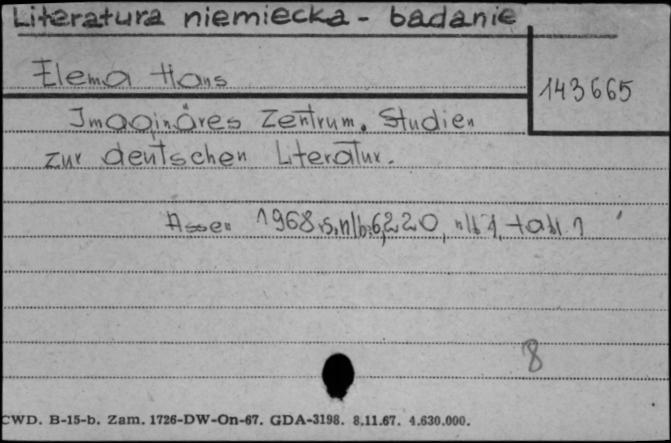 Literatura niemiecka - badanie
Elema Hans
143665
Imaginäres Zentrum. Studien
zur deutschen Literatur.
Assen 1968, s, nlb, 6, 220, nlb 1, tabl. 1
8
CWD. B-15-b. Zam. 1726-DW-On-67. GDA-3198. 8.11.67. 4.630.000.